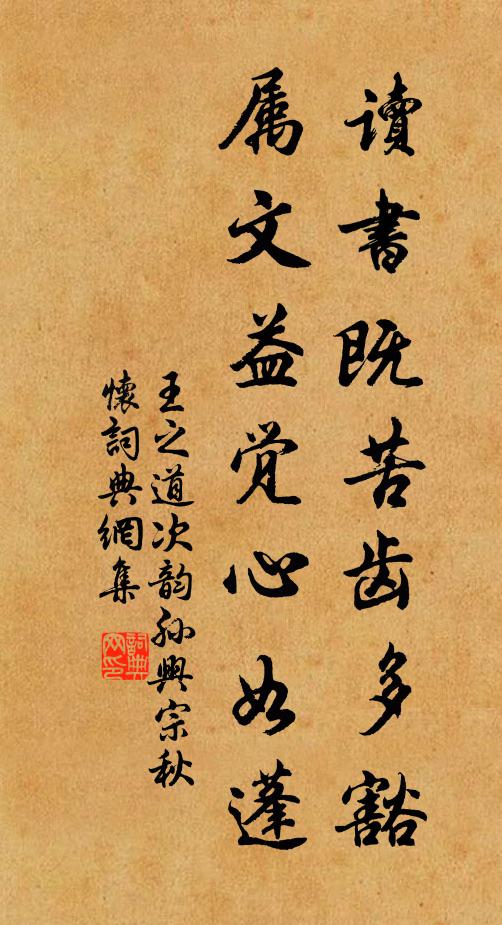 讀書既苦齿多豁
属文益觉心如蓬
王之道次韵孙興宗秋
懷詞典網集
詞典
网印